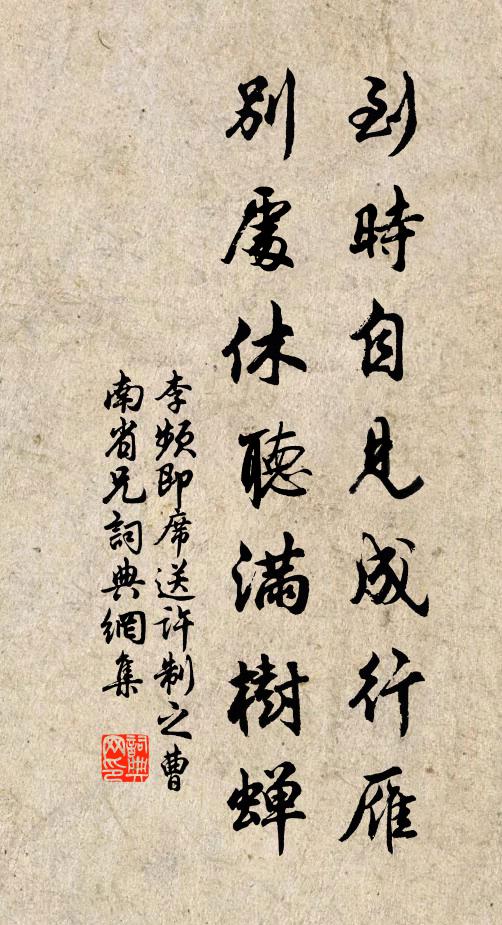 到時自見成行雁
別處休聽滿樹蟬
李頻即席送許制之曹
南省兄詞典網集
詞典
网印